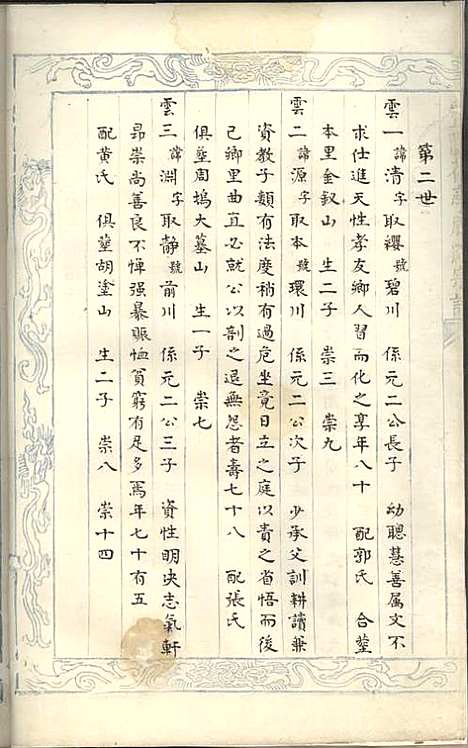 第二世
雲一諱清字取纓號碧川 係元二公長子 幼聰慧善属文不
求仕進天性孝友鄉人習而化之享年八十 配郭氏 合塟
本里金釵山 生二子 崇三 崇九
雲二諱源字取本號環川 係元二公次子 少承父訓耕讀兼
資教子頗有法度稍有過危坐竟日立之庭以責之省悟而後
已鄉里曲直必就公以剖之退無怨者壽七十八 配張氏
俱塟周塢大墓山 生一子 崇七
雲三諱淵字取静號前川 係元二公三子 資性明决志氣軒
昂崇尚善良不惮强暴賑恤貧窮有足多焉年七十有五
配黄氏 俱塟胡塗山 生二子 崇八 崇十四